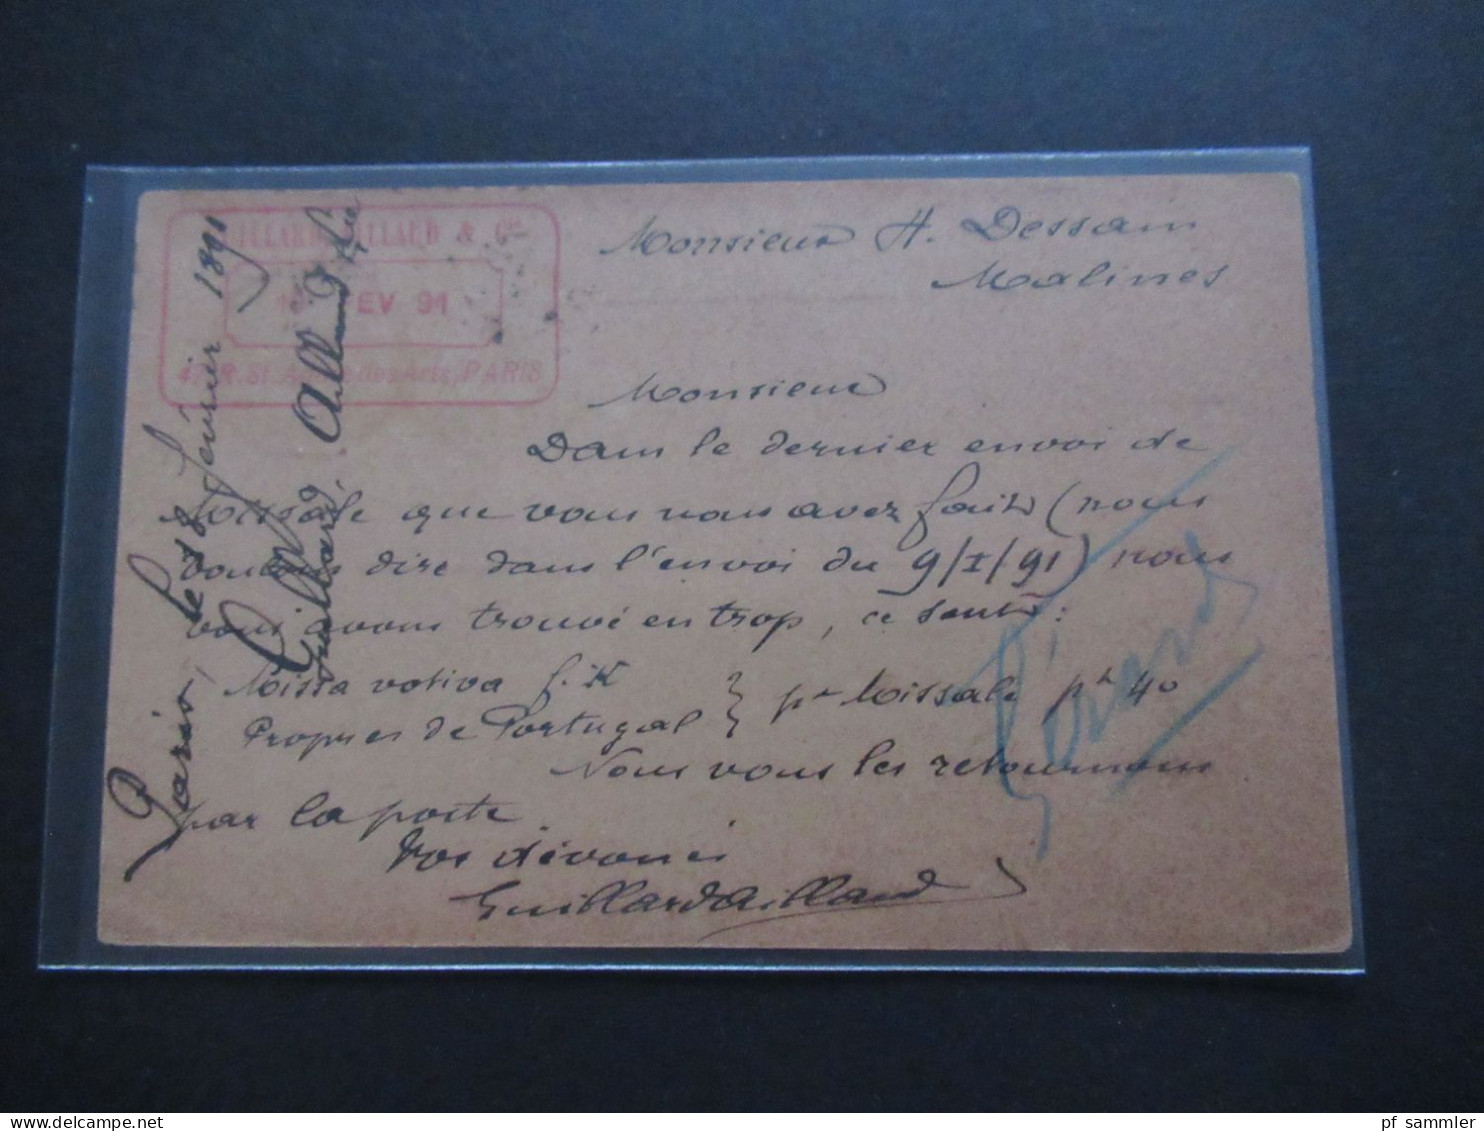 GUILLARD, AILLAUD & Cie
18 FEV 91
47, R. St. André des Arts, PARIS
Paris, le 18 février 1891
Guillard, Aillaud & Cie
Monsieur H. Dessain
Malines
Monsieur
Dans le dernier envoi de
Missale que vous nous avez fait (nous
voulons dire dans l'envoi du 9/I/91) nous
vous avons trouvé en trop, ce sont:
Missa votiva f. K
Propres de Portugal } pr Missale pt 4o
Nous vous les retournons
par la poste
Vos dévoués
Guillard Aillaud
pf sammler